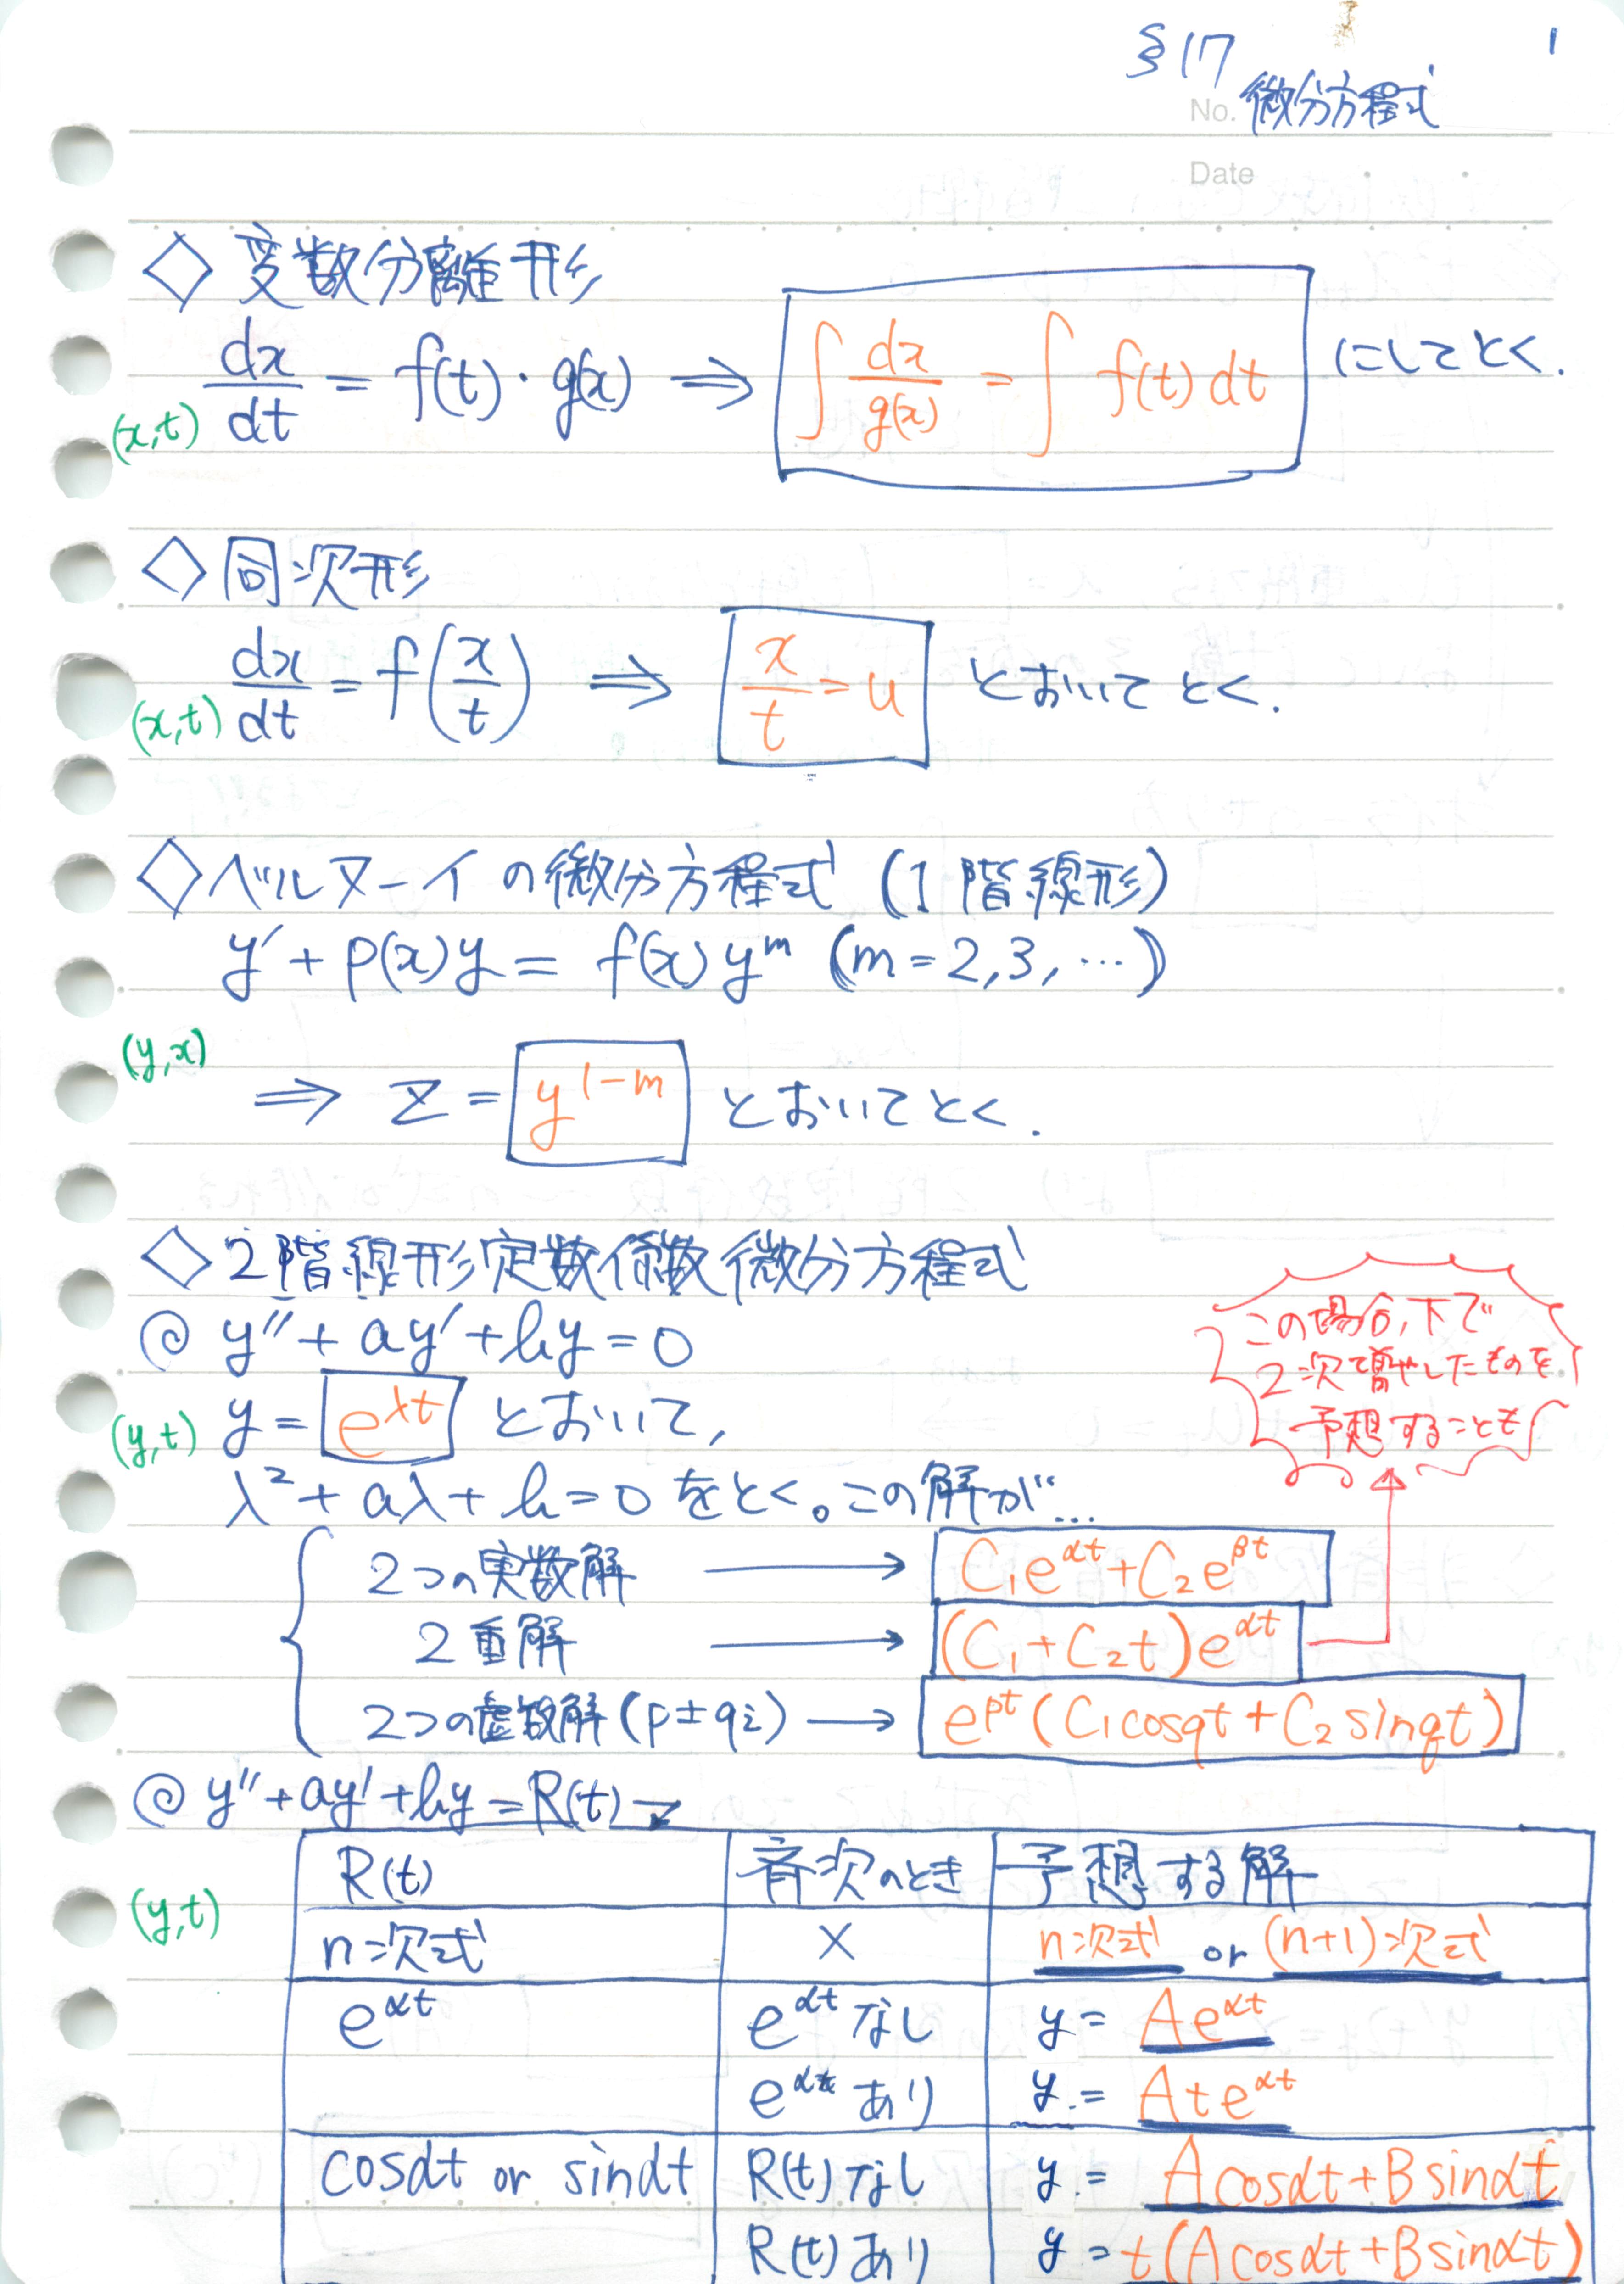 §17 1
No. 微分方程式
Date
◇ 変数分離形
dx/dt = f(t)・g(x) ⇒ ∫dx/g(x) = ∫f(t)dt にしてとく.
(x,t)
◇ 同次形
dx/dt = f(x/t) ⇒ x/t = u とおいて とく.
(x,t)
◇ ベルヌーイの微分方程式 (1階線形)
y' + p(x)y = f(x)y^m (m=2,3,…)
(y,x)
⇒ z = y^(1-m) とおいてとく.
◇ 2階線形定数係数微分方程式
@ y'' + ay' + by = 0
y = e^(λt) とおいて,
(y,t)
λ² + aλ + b = 0 をとく。この解が…
この場合,下で
2次で増やしたものを
予想することも
2つの実数解 → C₁e^(αt) + C₂e^(βt)
2重解 → (C₁+C₂t)e^(αt)
2つの虚数解(p±qi) → e^(pt)(C₁cosqt + C₂sinqt)
@ y''+ay'+by=R(t)
(y,t)
R(t) 斉次のとき 予想する解
n次式 × n次式 or (n+1)次式
e^(αt) e^(αt)なし y = Ae^(αt)
e^(αt)あり y = Ate^(αt)
cosαt or sinαt R(t)なし y = Acosαt+Bsinαt
R(t)あり y = t(Acosαt+Bsinαt)